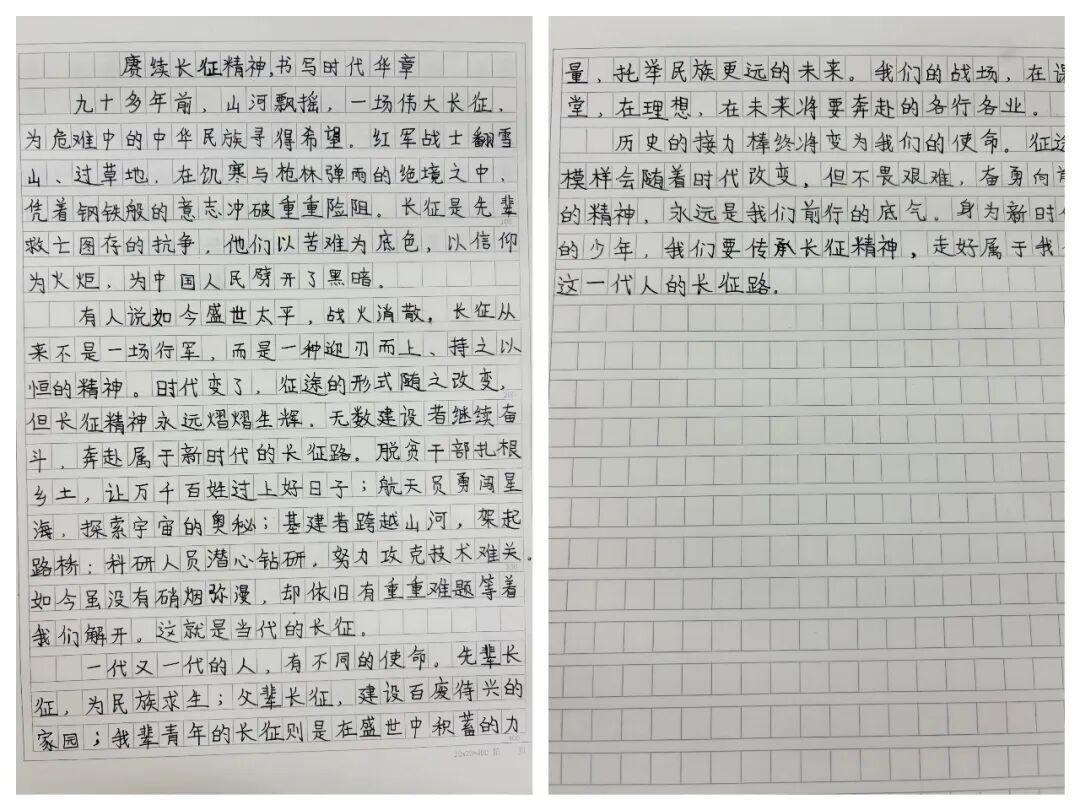 赓续长征精神,书写时代华章
九十多年前，山河飘摇，一场伟大长征，
为危难中的中华民族寻得希望。红军战士翻雪
山、过草地，在饥寒与枪林弹雨的绝境之中，
凭着钢铁般的意志冲破重重险阻。长征是先辈
救亡图存的抗争，他们以苦难为底色，以信仰
为火炬，为中国人民劈开了黑暗。
有人说如今盛世太平，战火消散。长征从
来不是一场行军，而是一种迎刃而上、持之以
恒的精神。时代变了，征途的形式随之改变，
但长征精神永远熠熠生辉。无数建设者继续奋
斗，奔赴属于新时代的长征路。脱贫干部扎根
乡土，让万千百姓过上好日子；航天员勇闯星
海，探索宇宙的奥秘；基建者跨越山河，架起
路桥；科研人员潜心钻研，努力攻克技术难关。
如今虽没有硝烟弥漫，却依旧有重重难题等着
我们解开。这就是当代的长征。
一代又一代的人，有不同的使命。先辈长
征，为民族求生；父辈长征，建设百废待兴的
家园；我辈青年的长征则是在盛世中积蓄的力
20×20=400
量，托举民族更远的未来。我们的战场，在课
堂，在理想，在未来将要奔赴的各行各业。
历史的接力棒终将变为我们的使命。征途
模样会随着时代改变，但不畏艰难，奋勇向前
的精神，永远是我们前行的底气。身为新时代
的少年，我们要传承长征精神，走好属于我们
这一代人的长征路。